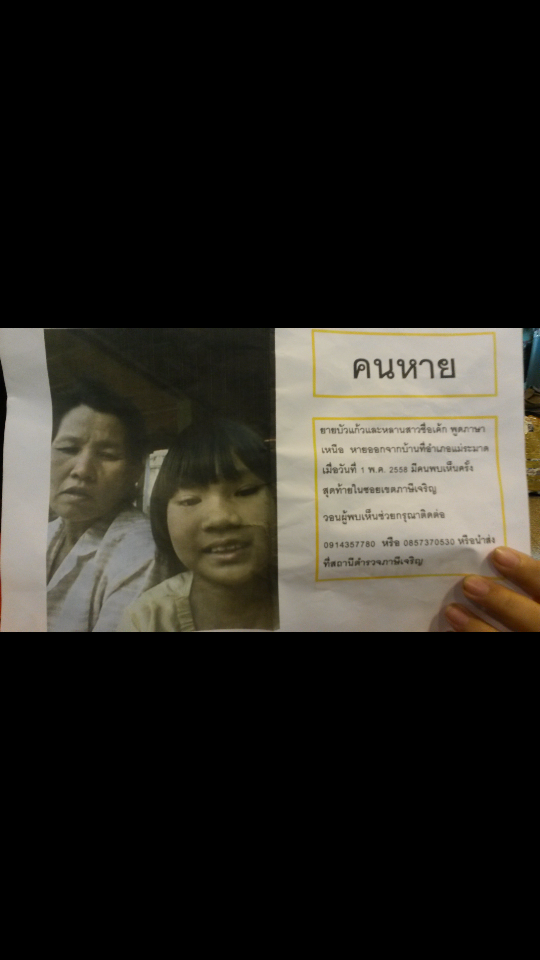 คนหาย
ยายบัวแก้วและหลานสาวชื่อเด้ก พูดภาษา
เหนือ หายออกจากบ้านที่อำเภอแม่ระมาด
เมื่อวันที่ 1 พ.ค. 2558 มีคนพบเห็นครั้ง
สุดท้ายในซอยเขตภาษีเจริญ
วอนผู้พบเห็นช่วยกรุณาติดต่อ
0914357780 หรือ 0857370530 หรือนำส่ง
ที่สถานีตำรวจภาษีเจริญ